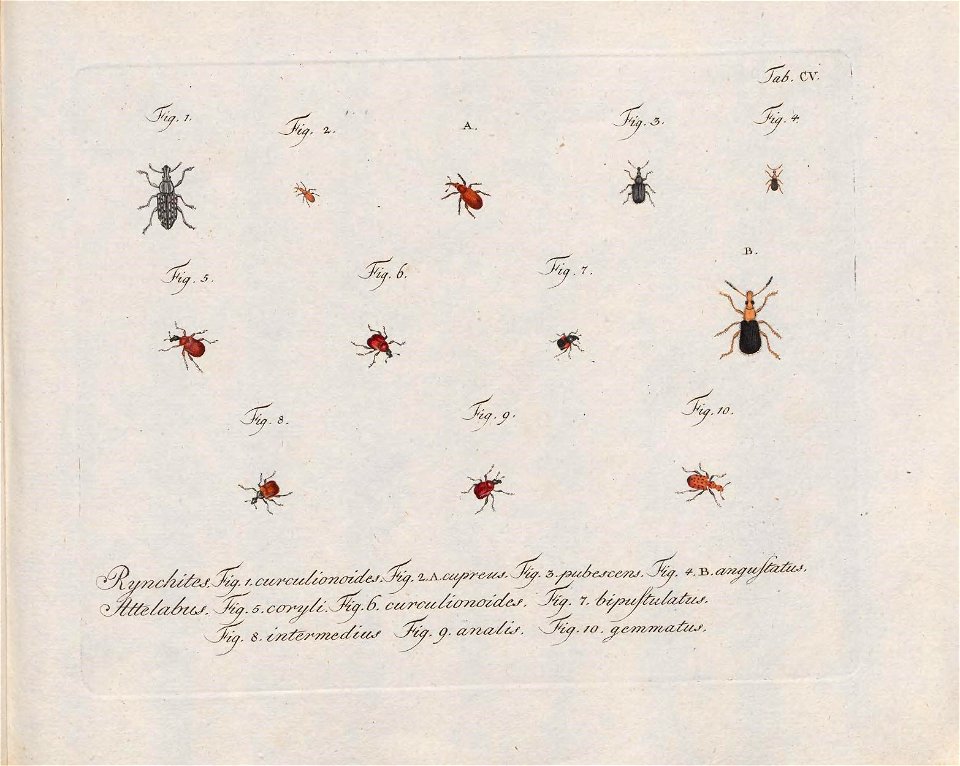 Tab. CV.
Fig. 1.
Fig. 2.
A.
Fig. 3.
Fig. 4.
Fig. 5.
Fig. 6.
Fig. 7.
B.
Fig. 8.
Fig. 9.
Fig. 10.
Rynchites. Fig. 1. curculionoides. Fig. 2. A. cupreus. Fig. 3. pubescens. Fig. 4. B. anguſtatus.
Attelabus. Fig. 5. coryli. Fig. 6. curculionoides. Fig. 7. bipuſtulatus.
Fig. 8. intermedius Fig. 9. analis. Fig. 10. gemmatus.